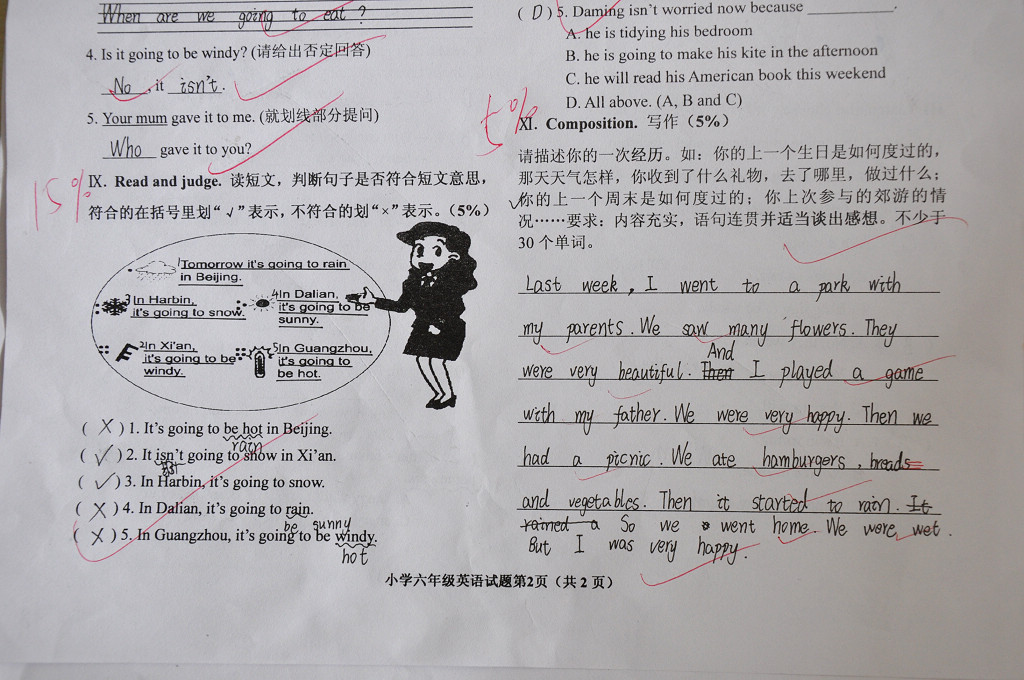 When are we going to eat ?
4. Is it going to be windy? (请给出否定回答)
No , it isn't.
5. Your mum gave it to me. (就划线部分提问)
Who gave it to you?
15%
Ⅸ. Read and judge. 读短文，判断句子是否符合短文意思，
符合的在括号里划“√”表示，不符合的划“×”表示。（5%）
1 Tomorrow it's going to rain
in Beijing.
3 In Harbin,
it's going to snow.
4 In Dalian,
it's going to be
sunny.
2 In Xi'an,
it's going to be
windy.
5 In Guangzhou,
it's going to
be hot.
( X ) 1. It's going to be hot in Beijing.
rain
( √ ) 2. It isn't going to snow in Xi'an.
( √ ) 3. In Harbin, it's going to snow.
( X ) 4. In Dalian, it's going to rain.
be sunny
( X ) 5. In Guangzhou, it's going to be windy.
hot
( D ) 5. Daming isn't worried now because ____________.
A. he is tidying his bedroom
B. he is going to make his kite in the afternoon
C. he will read his American book this weekend
D. All above. (A, B and C)
5%
Ⅺ. Composition. 写作（5%）
请描述你的一次经历。如：你的上一个生日是如何度过的，
那天天气怎样，你收到了什么礼物，去了哪里，做过什么；
√你的上一个周末是如何度过的；你上次参与的郊游的情
况……要求：内容充实，语句连贯并适当谈出感想。不少于
30 个单词。
Last week , I went to a park with
my parents . We saw many flowers . They
And
were very beautiful . Then I played a game
with my father . We were very happy . Then we
had a picnic . We ate hamburgers , breads
and vegetables . Then it started to rain . It
rained a So we went home . We were wet .
But I was very happy .
小学六年级英语试题第2页（共 2 页）